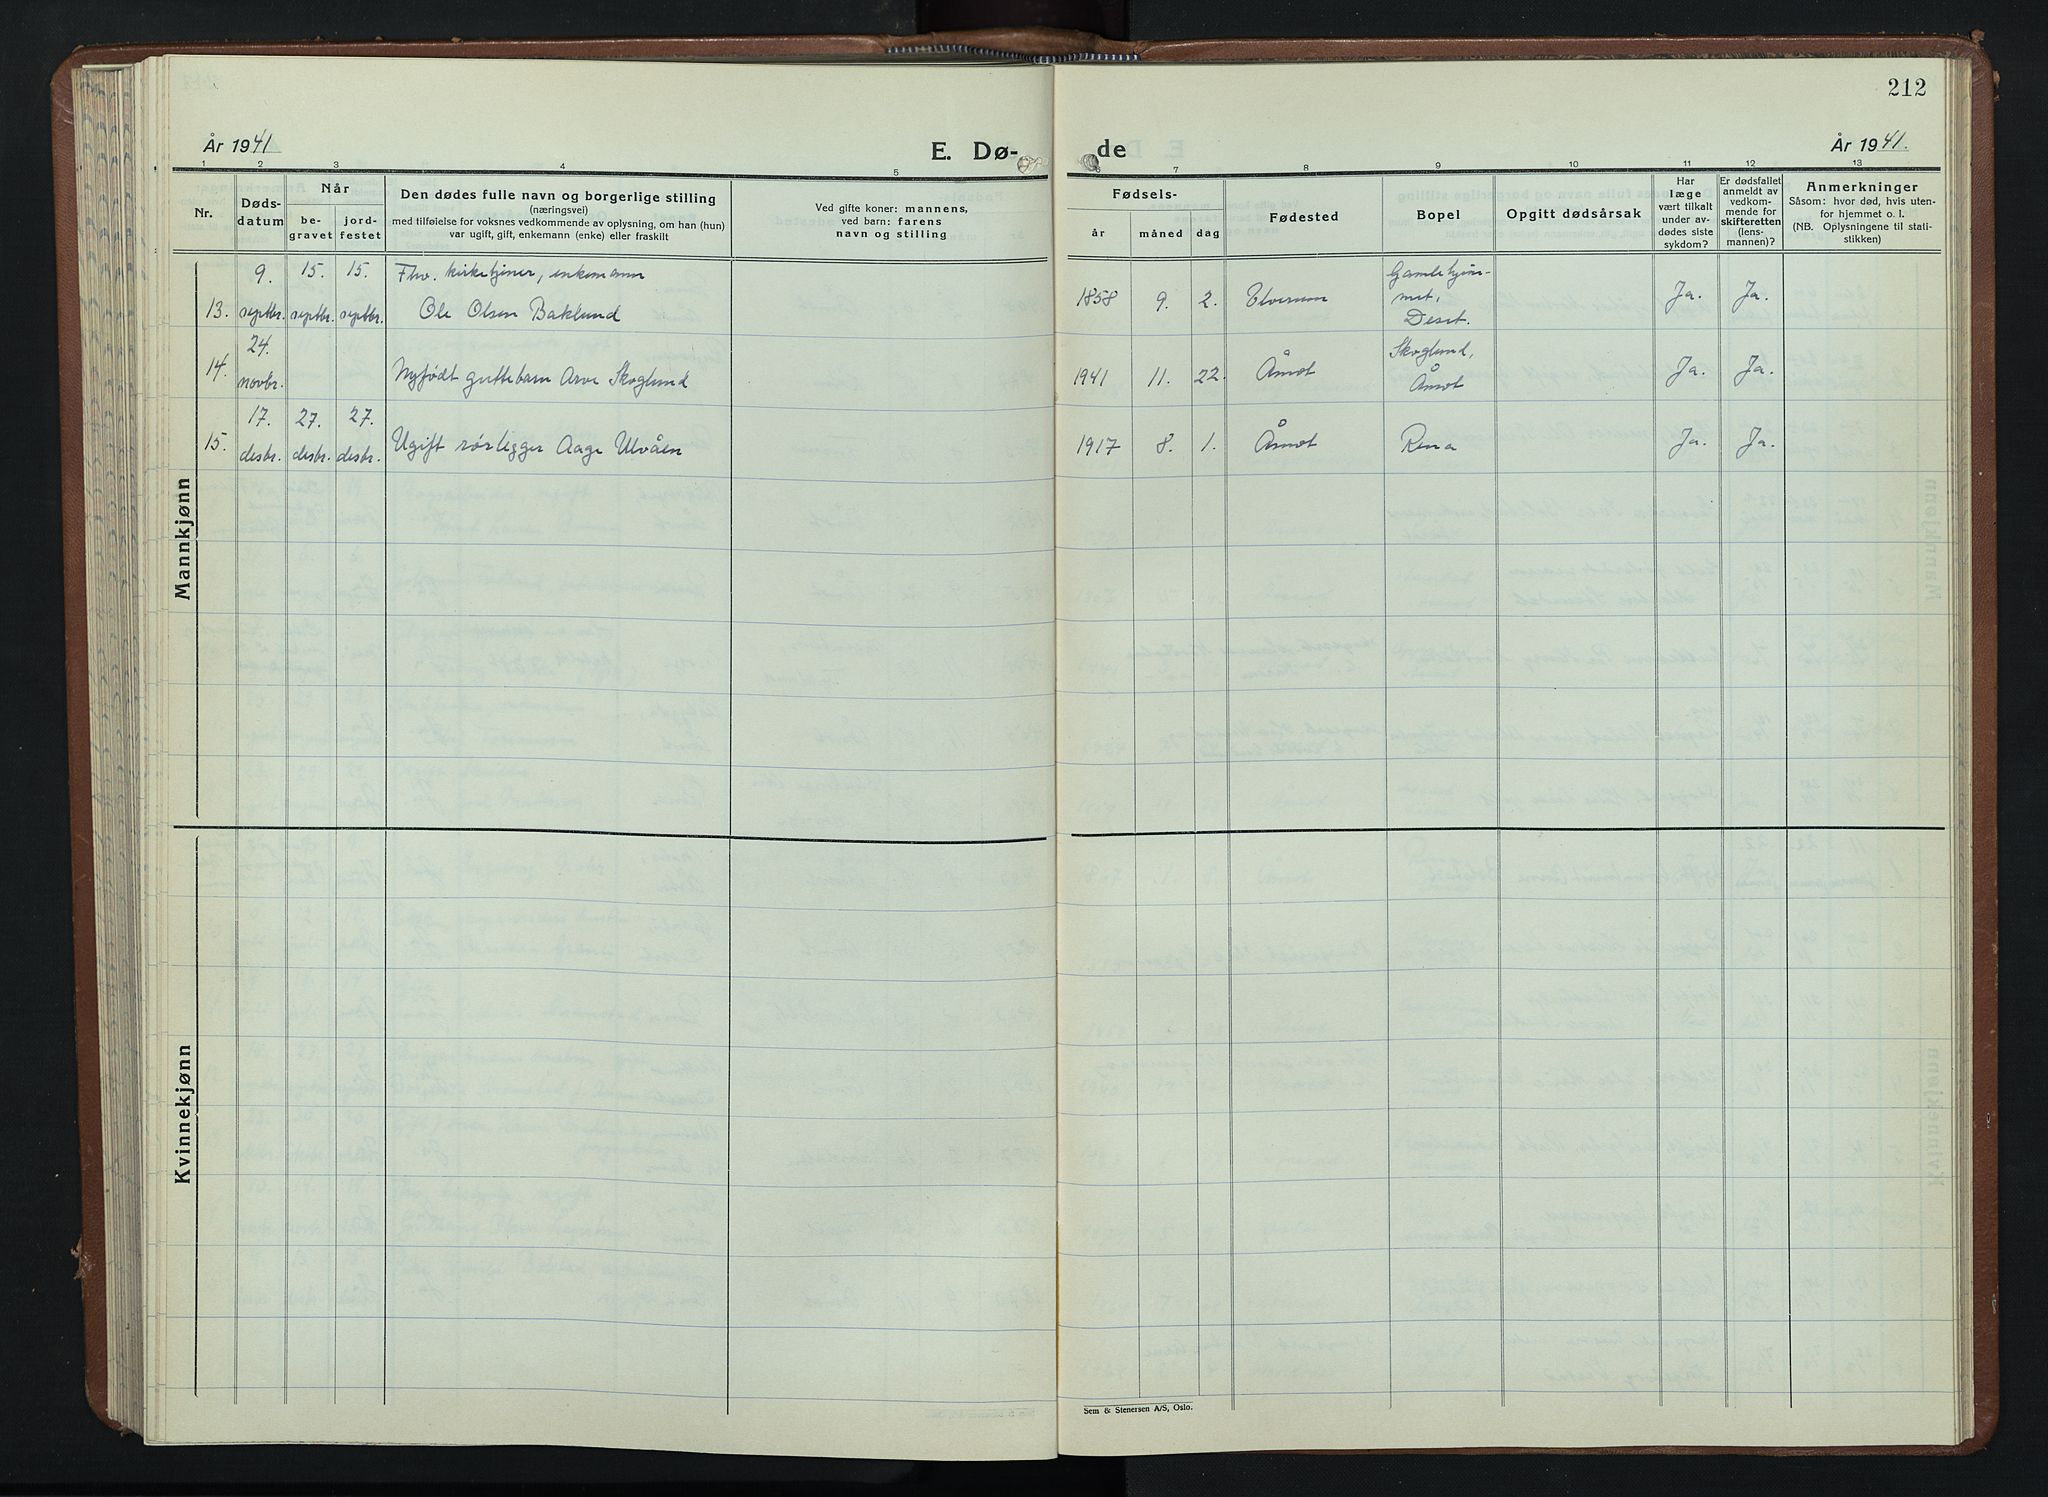 212
År 1941
E. Dø-
de
År 1941.
1 2 3 4 5 6 7 8 9 10 11 12 13
Nr.
Døds-
datum
Når
be-
gravet
jord-
festet
Den dødes fulle navn og borgerlige stilling
(næringsvei)
med tilføielse for voksnes vedkommende av oplysning, om han (hun)
var ugift, gift, enkemann (enke) eller fraskilt
Ved gifte koner: mannens,
ved barn: farens
navn og stilling
Fødsels-
år
måned
dag
Fødested
Bopel
Opgitt dødsårsak
Har
læge
vært tilkalt
under av-
dødes siste
sykdom?
Er dødsfallet
anmeldt av
vedkom-
mende for
skifteretten
(lens-
mannen)?
Anmerkninger
Såsom: hvor død, hvis uten-
for hjemmet o. l.
(NB. Oplysningene til stati-
stikken)
Mannkjønn
13.
9.
septbr.
15.
septbr.
15.
septbr.
Fhv. kirketjener, enkemann
Ole Olsen Baklund
1858 9. 2. Elverum
Gamlehjem-
met,
Deset.
Ja. Ja.
14.
24.
novbr.
Nyfødt guttebarn Arve Skoglund
1941 11. 22. Åmot
Skoglund,
Åmot
Ja. Ja.
15.
17.
desbr.
27.
desbr.
27.
desbr.
Ugift rørlegger Aage Ulvåen
1917 8. 1. Åmot
Rena
Ja. Ja.
Kvinnekjønn
Sem & Stenersen A/S, Oslo.